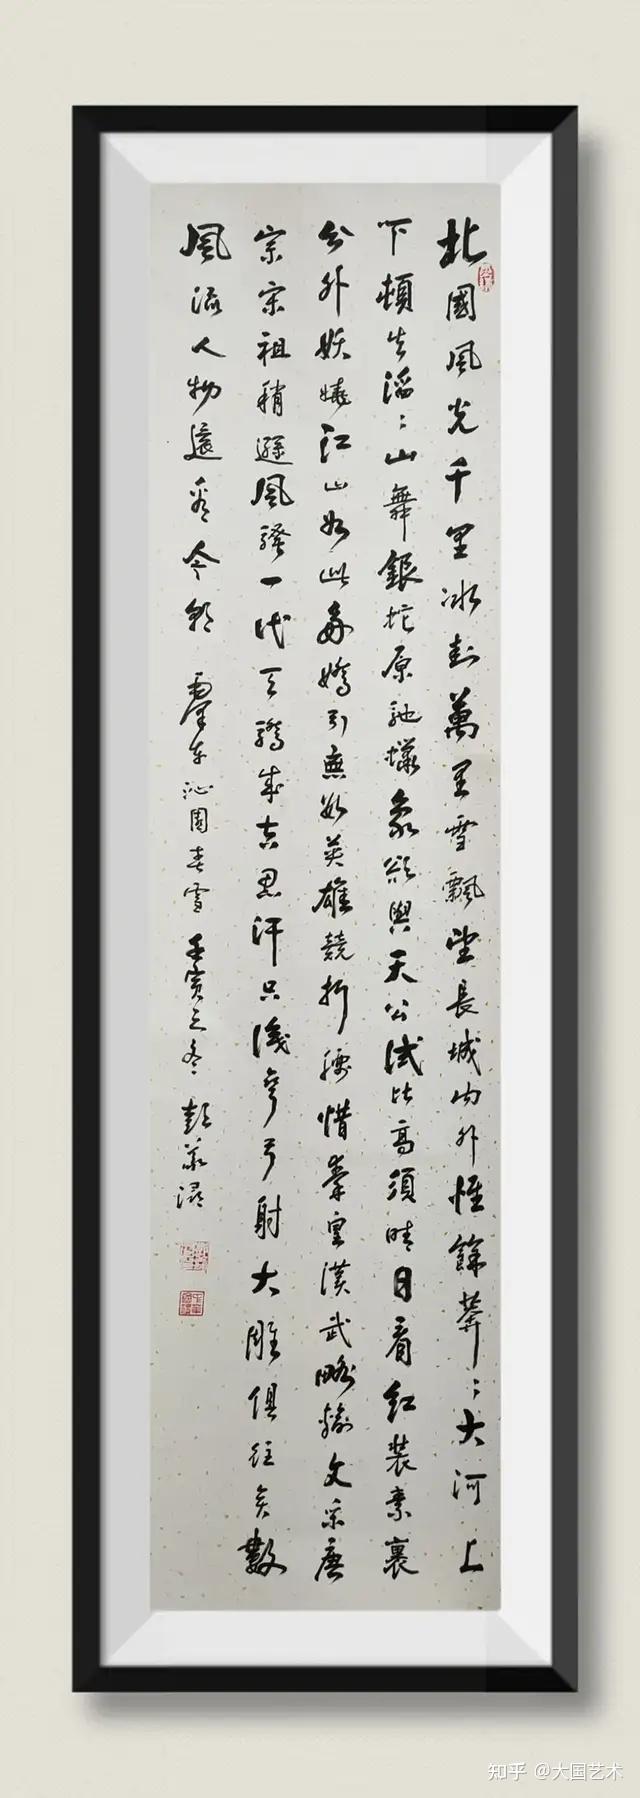 北國風光千里冰封萬里雪飄望長城內外惟餘莽〻大河上
下頓失滔〻山舞銀蛇原馳蠟象欲與天公試比高須晴日看紅裝素裹
分外妖嬈江山如此多嬌引無數英雄競折腰惜秦皇漢武略輸文采唐
宗宋祖稍遜風騷一代天驕成吉思汗只識彎弓射大雕俱往矣數
風流人物還看今朝 沁園春雪 壬寅之冬 彭
知乎 @大国艺术